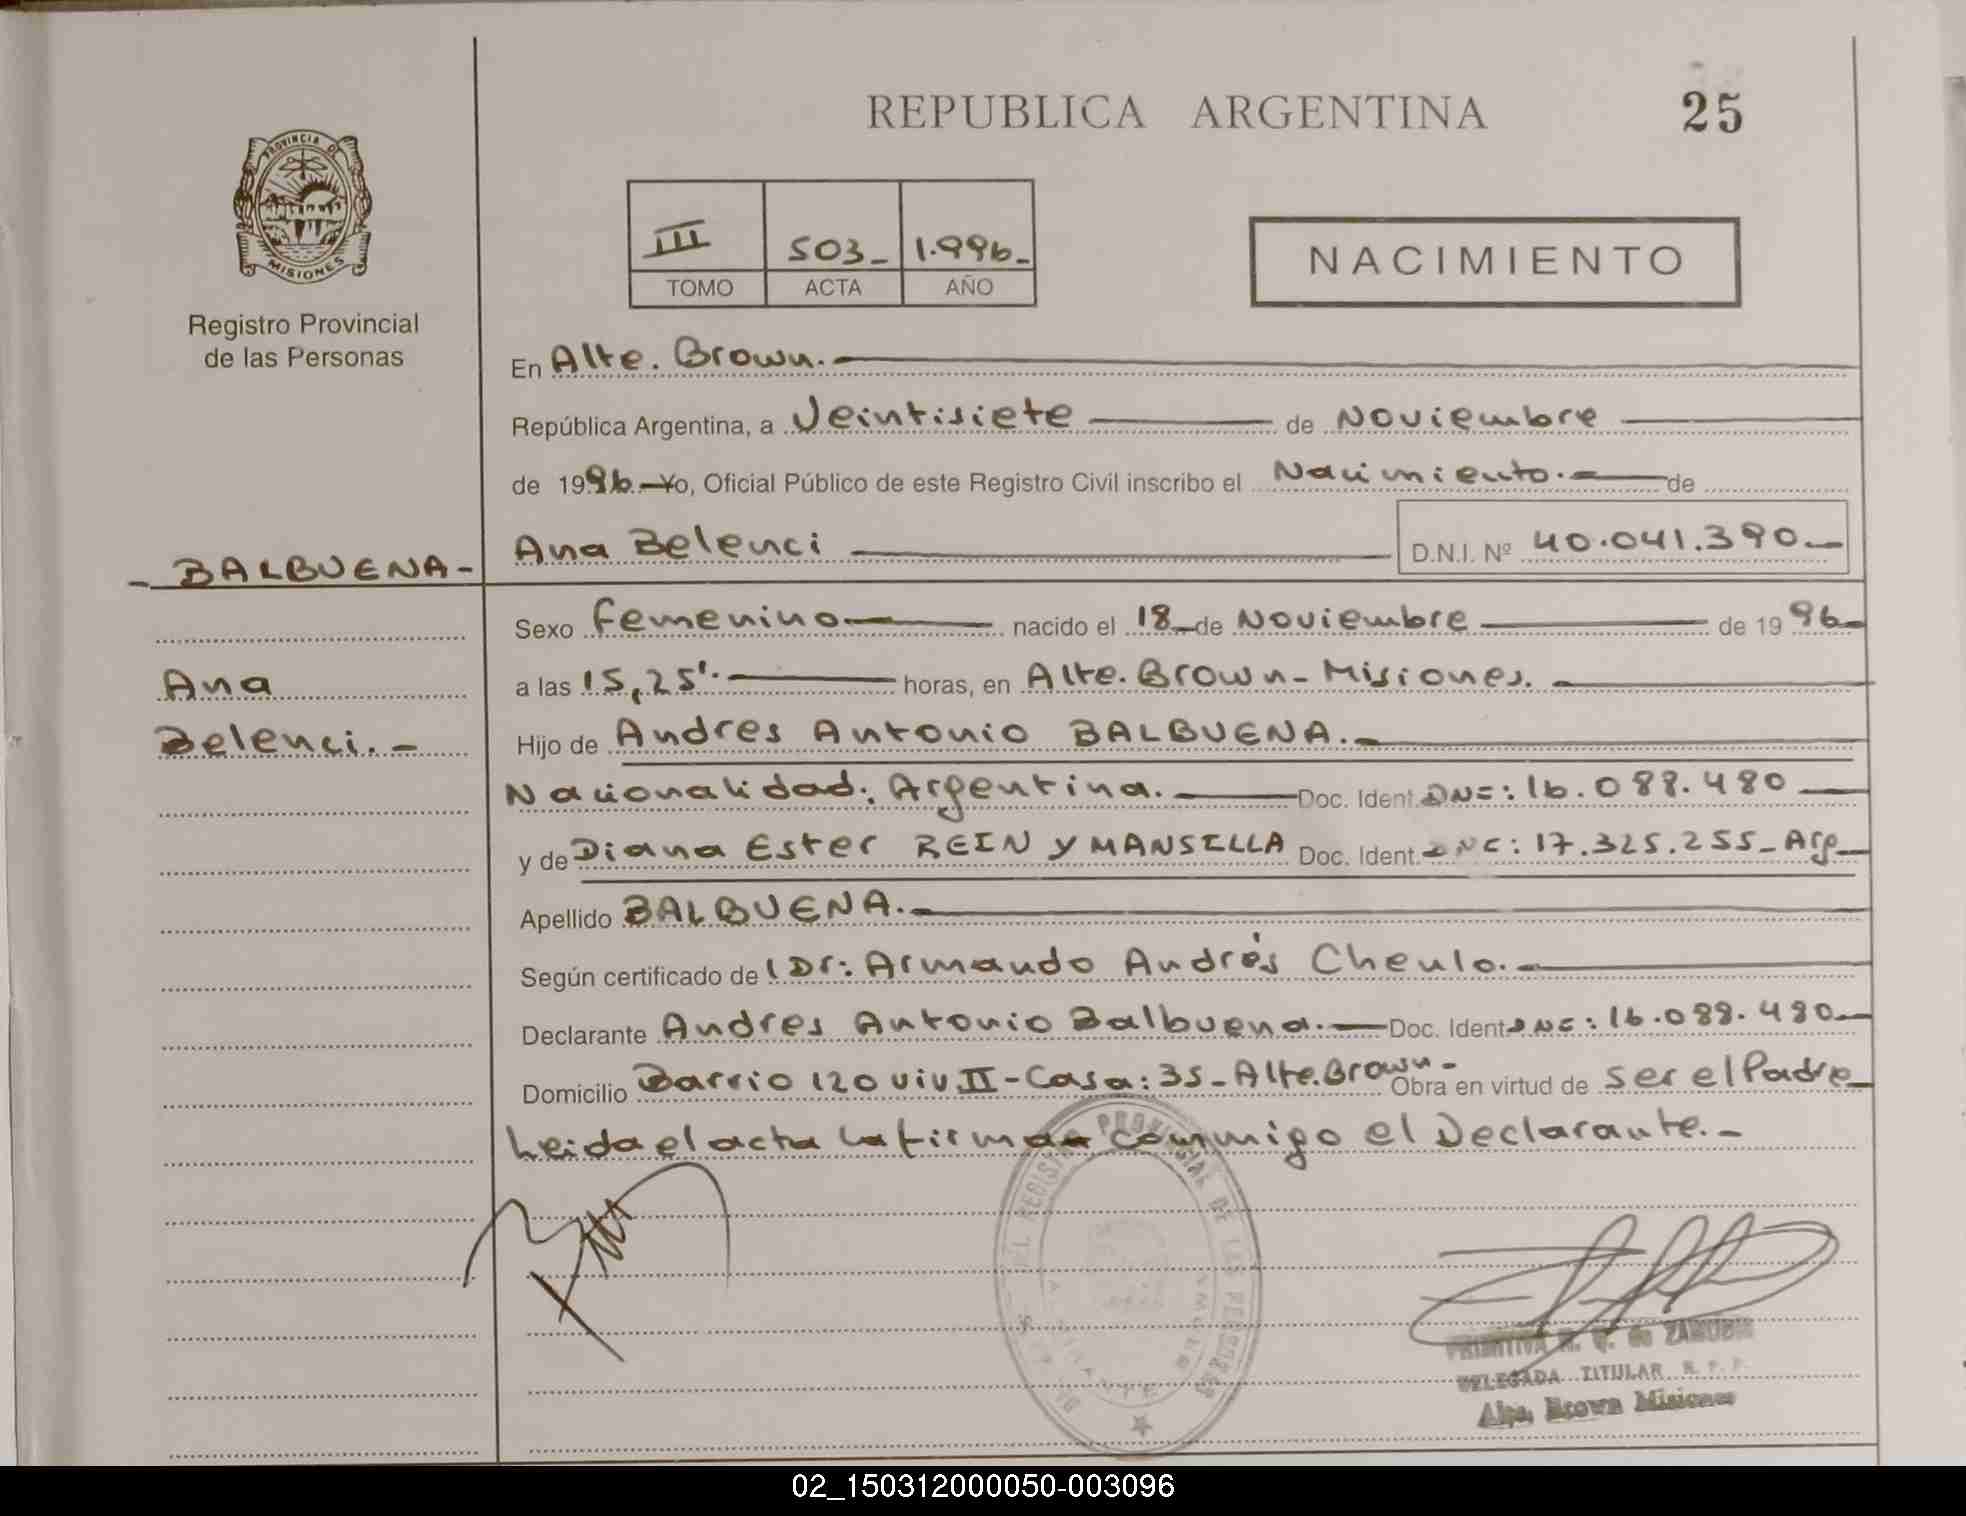 REPUBLICA ARGENTINA
25
PROVINCIA DE
MISIONES
Registro Provincial
de las Personas
III 503_ 1.996_
TOMO ACTA AÑO
NACIMIENTO
En Alte. Brown.
República Argentina, a Veintisiete de Noviembre
de 1996. Yo, Oficial Público de este Registro Civil inscribo el Nacimiento. de
Ana Belenci D.N.I. Nº 40.041.390
- BALBUENA -
Sexo Femenino nacido el 18 de Noviembre de 1996
Ana
a las 15,25'. horas, en Alte. Brown - Misiones.
Belenci. -
Hijo de Andres Antonio BALBUENA.
Nacionalidad: Argentina. Doc. Ident. DNI: 16.088.480
y de Diana Ester REIN Y MANSILLA Doc. Ident. DNI: 17.325.255 - Arg
Apellido BALBUENA.
Según certificado de Dr: Armando Andrés Cheulo.
Declarante Andres Antonio Balbuena. Doc. Ident DNI: 16.088.480
Domicilio Barrio 120 viv II - Casa: 35 - Alte. Brown - Obra en virtud de ser el Padre
Leida el acta la firma commigo el Declarante. -
DEL REGISTRO PROVINCIAL DE LAS PERSONAS
ALMIRANTE BROWN
de ZAMUDIO
DELEGADA TITULAR R. P. P.
Alte. Brown Misiones
02_150312000050-003096